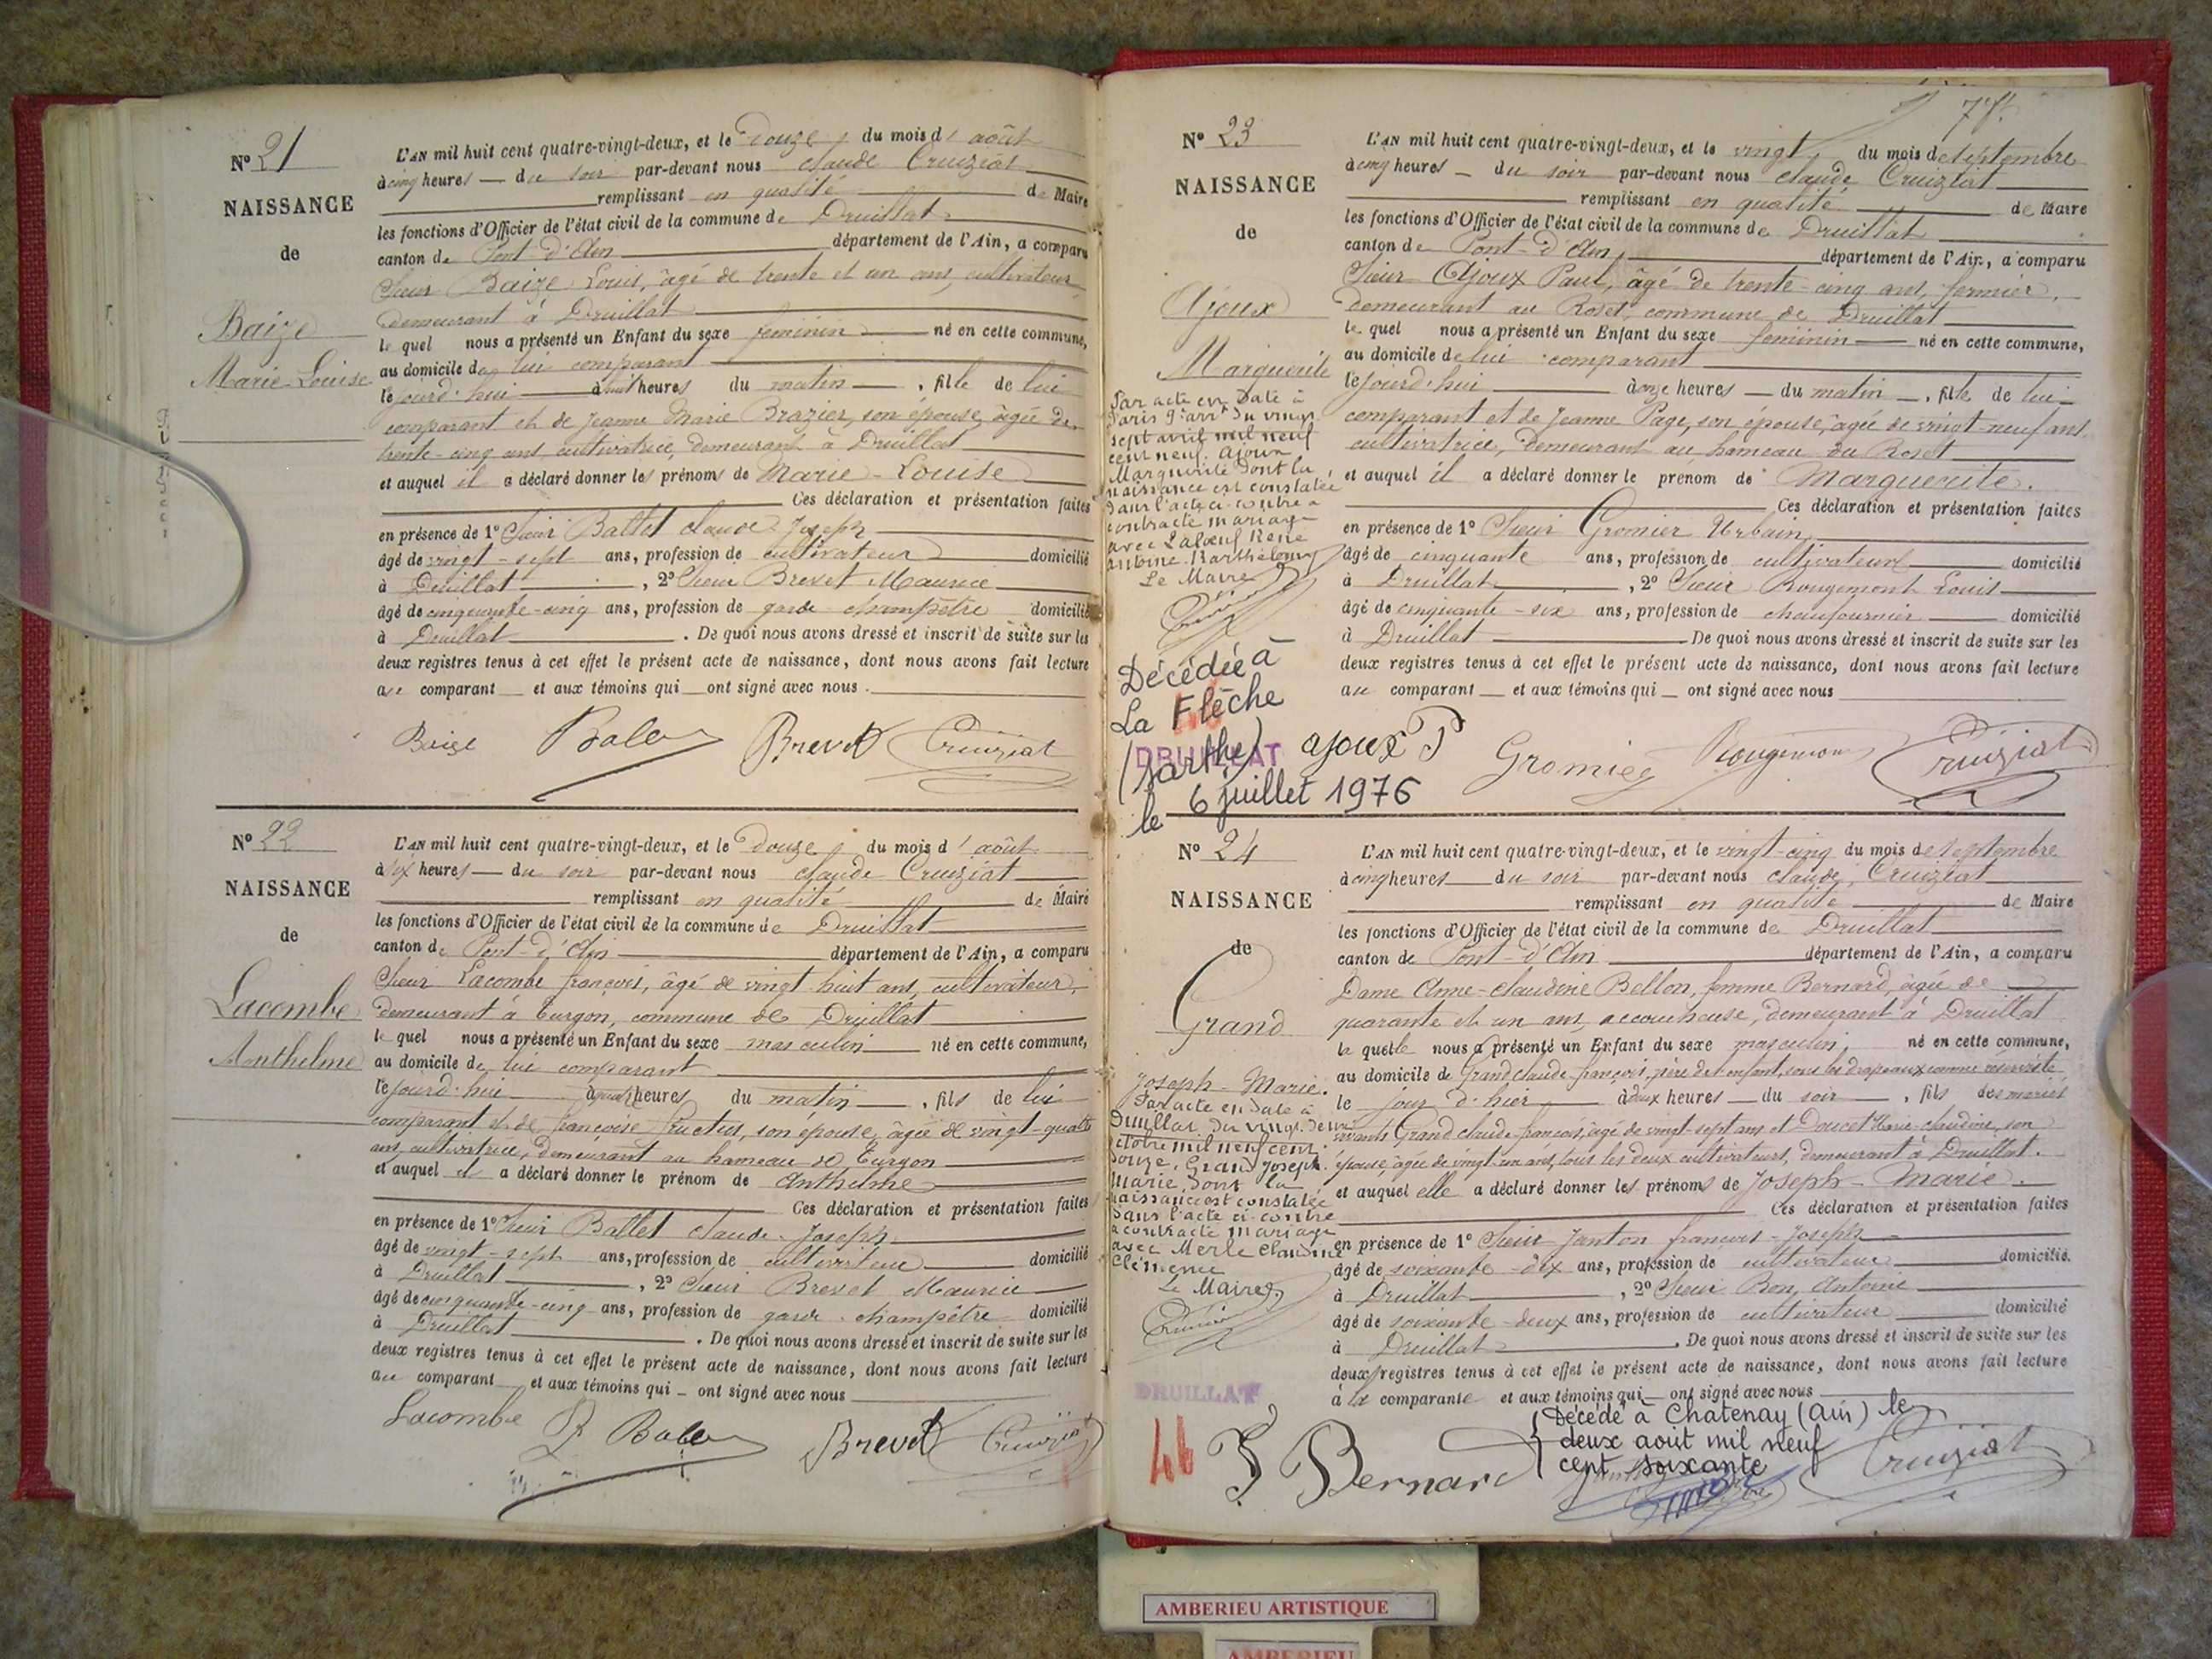 N° 21
NAISSANCE
de
Baize
Marie-Louise
L'AN mil huit cent quatre-vingt-deux, et le Douze du mois d' août
à cinq heures du soir par-devant nous Claude Cruiziat
remplissant en qualité de Maire
les fonctions d'Officier de l'état civil de la commune de Druillat
canton de Pont-d'Ain département de l'Ain, a comparu
Sieur Baize Louis, âgé de trente et un ans, cultivateur,
demeurant à Druillat
le quel nous a présenté un Enfant du sexe féminin né en cette commune,
au domicile de lui comparant
le jourd'hui à huit heures du matin, fille de lui
comparant et de Jeanne Marie Brazier, son épouse, âgée de
trente-cinq ans cultivatrice, demeurant à Druillat
et auquel il a déclaré donner les prénoms de Marie-Louise
Ces déclaration et présentation faites
en présence de 1° Sieur Ballet Claude Joseph
âgé de vingt-sept ans, profession de cultivateur domicilié
à Druillat, 2° Sieur Brevet Maurice
âgé de cinquante-cinq ans, profession de garde champêtre domicilié
à Druillat. De quoi nous avons dressé et inscrit de suite sur les
deux registres tenus à cet effet le présent acte de naissance, dont nous avons fait lecture
au comparant et aux témoins qui ont signé avec nous.
Baize Brevet Cruiziat
N° 22
NAISSANCE
de
Lacombe
Anthelme
L'AN mil huit cent quatre-vingt-deux, et le Douze du mois d' août
à six heures du soir par-devant nous Claude Cruiziat
remplissant en qualité de Maire
les fonctions d'Officier de l'état civil de la commune de Druillat
canton de Pont-d'Ain département de l'Ain, a comparu
Sieur Lacombe françois, âgé de vingt huit ans, cultivateur,
demeurant à Turgon, commune de Druillat
le quel nous a présenté un Enfant du sexe masculin né en cette commune,
au domicile de lui comparant
le jourd'hui à heures du matin, fils de lui
comparant et de françoise son épouse, âgée de vingt-quatre
ans, cultivatrice, demeurant au hameau de Turgon
et auquel il a déclaré donner le prénom de Anthelme
Ces déclaration et présentation faites
en présence de 1° Sieur Ballet Claude-Joseph
âgé de vingt-sept ans, profession de cultivateur domicilié
à Druillat, 2° Sieur Brevet Maurice
âgé de cinquante-cinq ans, profession de garde champêtre domicilié
à Druillat. De quoi nous avons dressé et inscrit de suite sur les
deux registres tenus à cet effet le présent acte de naissance, dont nous avons fait lecture
au comparant et aux témoins qui ont signé avec nous
Lacombe Brevet Cruiziat
N° 23
NAISSANCE
de
Ajoux
Marguerite
Par acte en date à
Paris 9e arrt du vingt
sept avril mil neuf
cent neuf. Ajoux
Marguerite dont la
naissance est constatée
dans l'acte ci-contre a
contracté mariage
avec Laloeuf René
Antoine Barthélemy
Le Maire
Décédée à
La Flèche
(Sarthe)
le 6 juillet 1976
DRUILLAT
L'AN mil huit cent quatre-vingt-deux, et le vingt du mois de septembre
à cinq heures du soir par-devant nous Claude Cruiziat
remplissant en qualité de Maire
les fonctions d'Officier de l'état civil de la commune de Druillat
canton de Pont-d'Ain, département de l'Ain, a comparu
Sieur Ajoux Paul, âgé de trente-cinq ans, fermier,
demeurant au Roset, commune de Druillat
le quel nous a présenté un Enfant du sexe féminin né en cette commune,
au domicile de lui comparant
le jourd'hui à onze heures du matin, fille de lui
comparant et de Jeanne Page, son épouse, âgée de vingt-neuf ans,
cultivatrice, demeurant au hameau du Roset
et auquel il a déclaré donner le prénom de Marguerite.
Ces déclaration et présentation faites
en présence de 1° Sieur Gromier Urbain,
âgé de cinquante ans, profession de cultivateur domicilié
à Druillat, 2° Sieur Rougemont Louis
âgé de cinquante-six ans, profession de chaufournier domicilié
à Druillat De quoi nous avons dressé et inscrit de suite sur les
deux registres tenus à cet effet le présent acte de naissance, dont nous avons fait lecture
au comparant et aux témoins qui ont signé avec nous
ajoux P Gromier Rougemont Cruiziat
N° 24
NAISSANCE
de
Grand
Joseph-Marie.
Par acte en date à
Druillat du vingt-deux
octobre mil neuf cent
douze. Grand Joseph
Marie, dont la
naissance est constatée
dans l'acte ci-contre
a contracté mariage
avec Merle Claudine
Clémence
Le Maire,
DRUILLAT
46
L'AN mil huit cent quatre-vingt-deux, et le vingt-cinq du mois de septembre
à cinq heures du soir par-devant nous Claude Cruiziat
remplissant en qualité de Maire
les fonctions d'Officier de l'état civil de la commune de Druillat
canton de Pont-d'Ain département de l'Ain, a comparu
Dame Anne-Claudine Bellon, femme Bernard, âgée de
quarante et un ans, accoucheuse, demeurant à Druillat
la quelle nous a présenté un Enfant du sexe masculin, né en cette commune,
au domicile de Grand claude-françois, père de l'enfant, sous les drapeaux comme réserviste
le jour d'hier à deux heures du soir, fils des mariés
vivants Grand claude-françois, âgé de vingt-sept ans et Doucet Marie-claudine, son
épouse, âgée de vingt-un ans, tous les deux cultivateurs, demeurant à Druillat.
et auquel elle a déclaré donner les prénoms de Joseph-Marie.
Ces déclaration et présentation faites
en présence de 1° Sieur Janton françois-Joseph
âgé de soixante-dix ans, profession de cultivateur domicilié.
à Druillat, 2° Sieur Bon, Antoine
âgé de soixante-deux ans, profession de cultivateur domicilié
à Druillat. De quoi nous avons dressé et inscrit de suite sur les
deux registres tenus à cet effet le présent acte de naissance, dont nous avons fait lecture
à la comparante et aux témoins qui ont signé avec nous
Décédé à Chatenay (Ain) le
deux août mil neuf
cent soixante
Bernard Cruiziat
AMBERIEU ARTISTIQUE
AMBERIEU